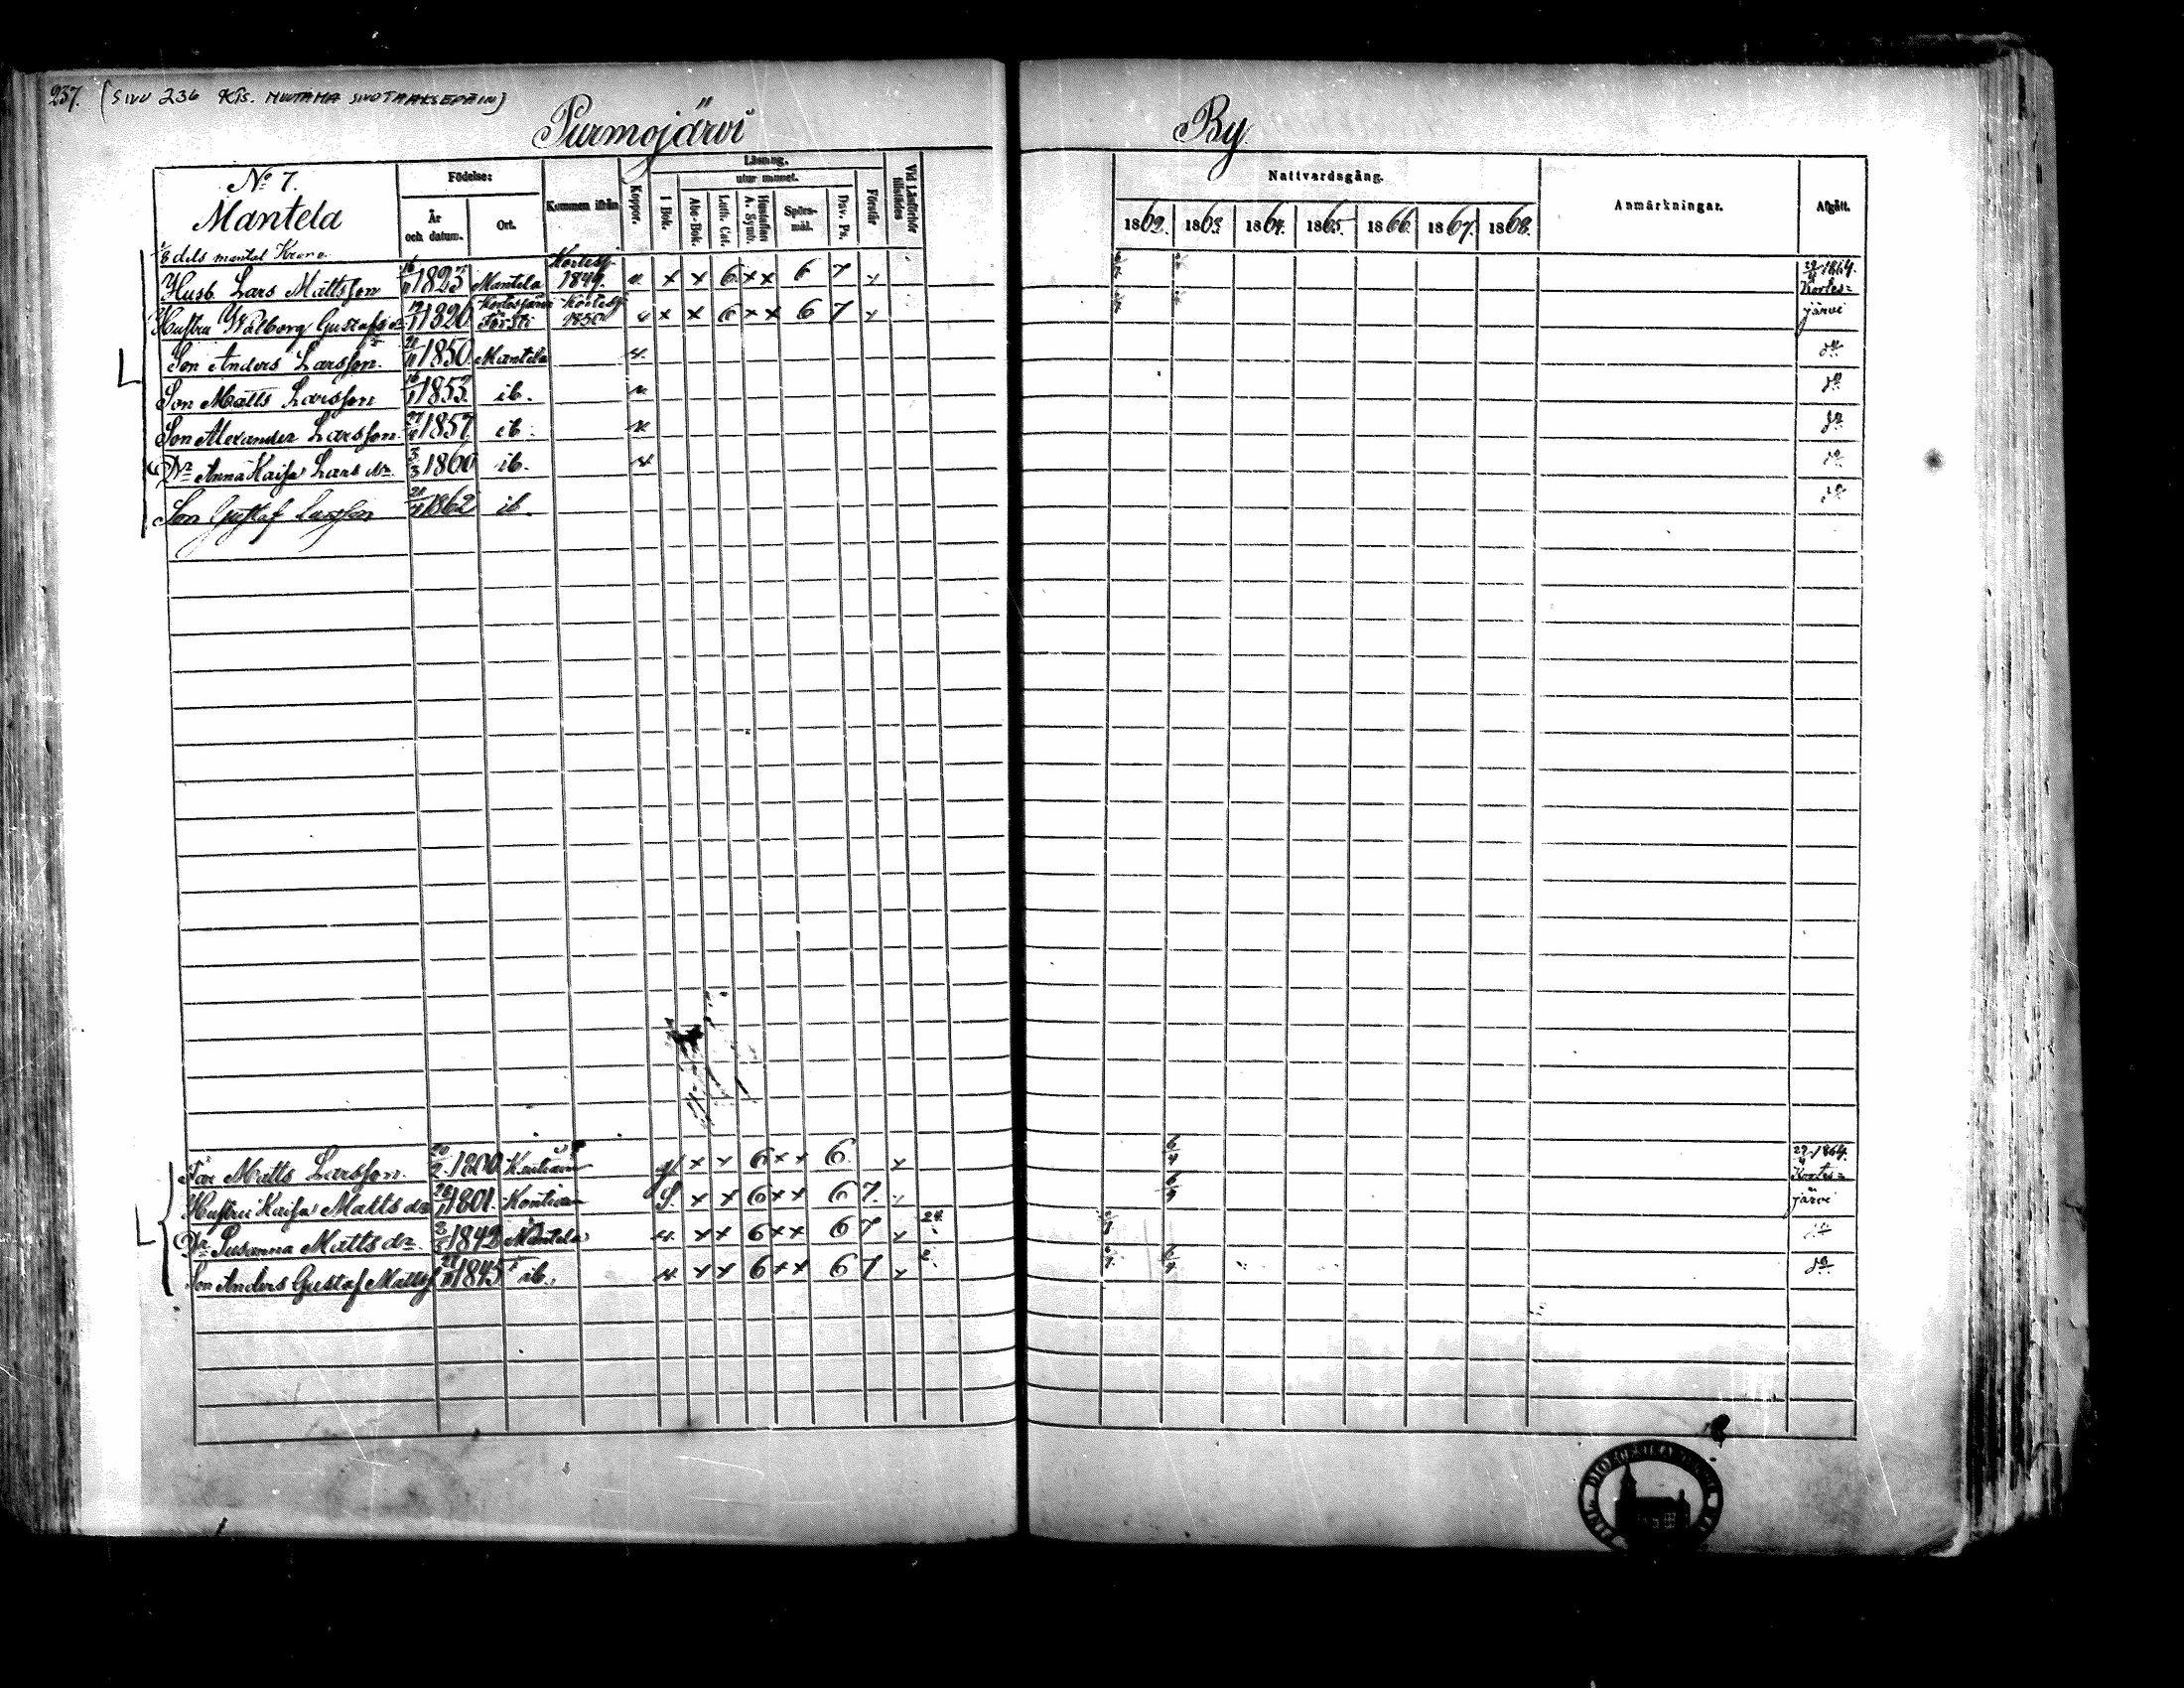 237. (SIVU 236 KTS. MUUTAMA SIVU TAAKSEPÄIN)
Purmojärvi By.
No 7.
Mantela
Födelse:
År och datum.
Ort.
Kommen ifrån
Koppor.
Läsning.
utur minnet.
I Bok.
Abc-Bok.
Luth. Cat.
Hustaflan A. Symb.
Spörsmål.
Dav. Ps.
Förstår
Vid Läsförhör tillstädes
Nattvardsgång.
1862. 1863. 1864. 1865. 1866. 1867. 1868.
Anmärkningar.
Afgått.
dels mantal Krono
Husb. Lars Mattsson 1823 Mantela Kortesj. 1849. x x 6 x x 6 7 x 1864. Kortes=
Hustru Walborg Gustafsdr 1826 Kortesjärvi Försti Kortesj 1850 x x 6 x x 6 7 x järvi
Son Anders Larsson. 1850 Mantela do
Son Matts Larsson 1853. ib. do
Son Alexander Larsson. 1857. ib. do
Dr Anna Kaisa Lars dr. 1860 ib. do
Son Gustaf Larsson 1862 ib. do
Far Matts Larsson. 1800. x x 6 x x 6. x 1864. Kortes=
Hustru Kaisa Matts dr 1801. x x 6 x x 6 7. järvi
Dr Susanna Matts dr. 1842 Mantela x x 6 x x 6 7 x 24.
Son Anders Gustaf Mattss 1845 ib. x x 6 x x 6 7 x do